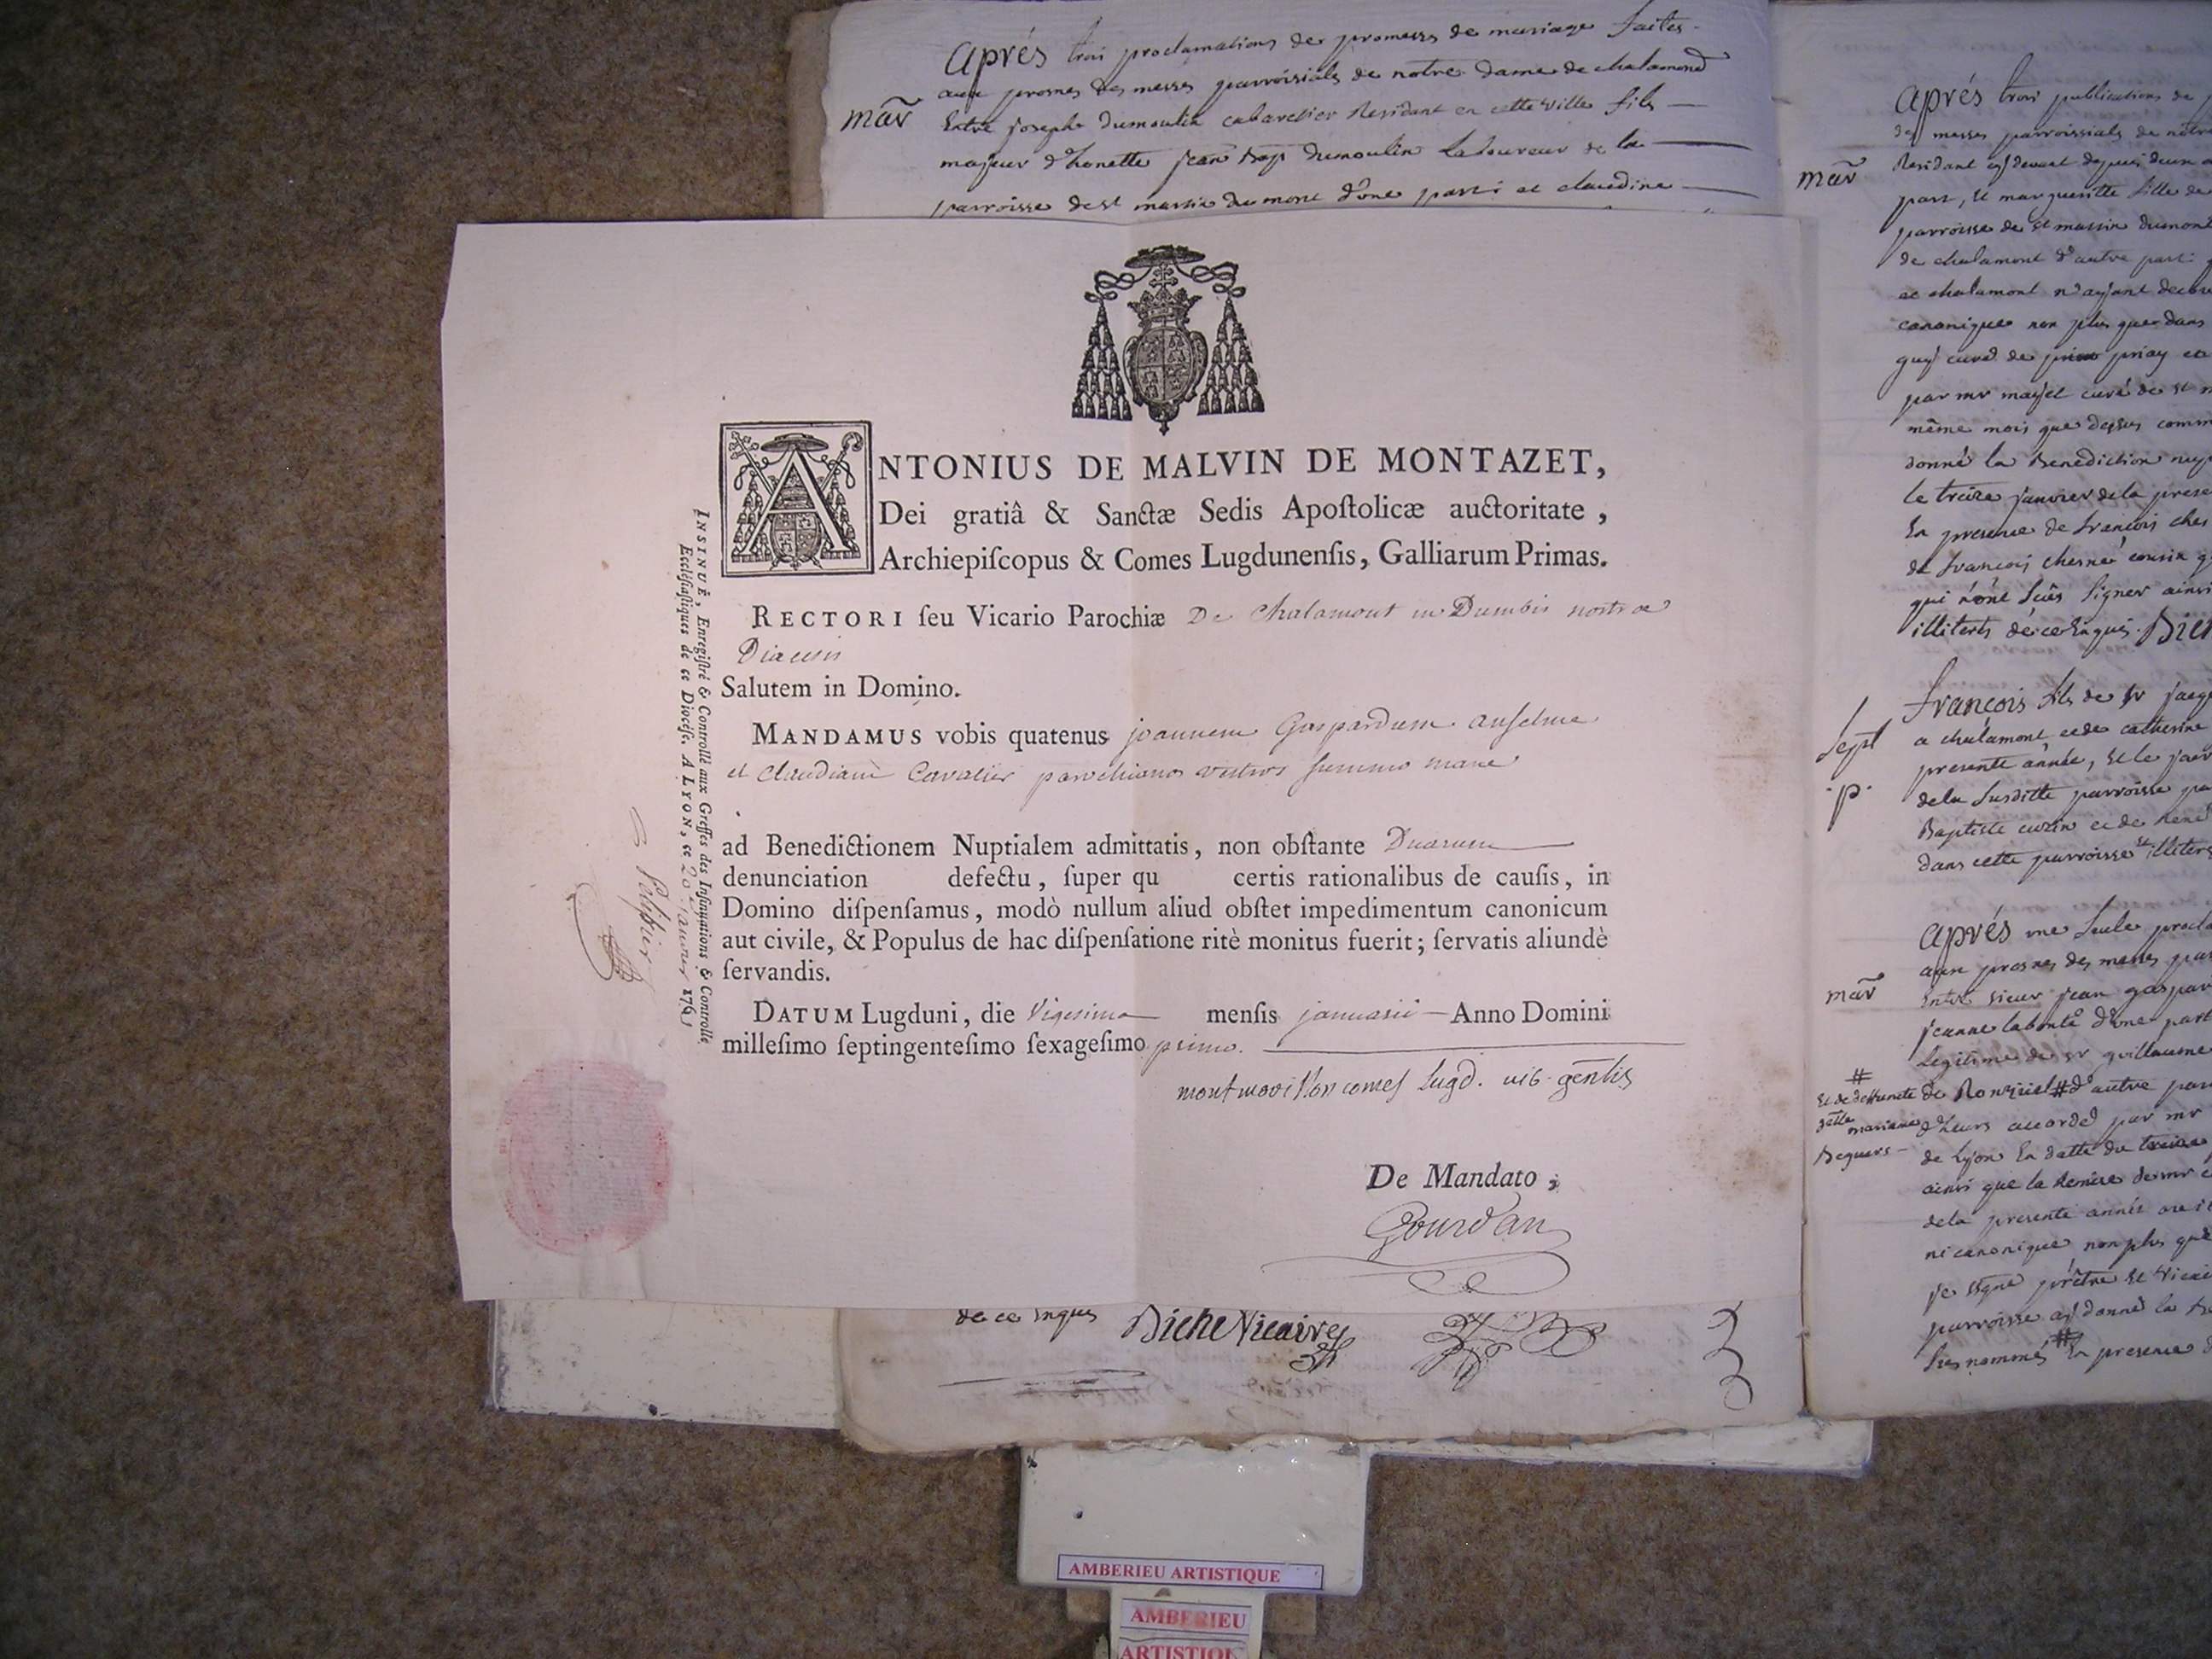 Aprés trois proclamations de promesses de mariage faites
aux prosnes des messes parroissiales de notre dame de chalamond
mar̃
Entre joseph dumoulin cabaretier Residant en cette ville fils
majeur d'honette jean bap dumoulin Laboureur de la
parroisse de st martin du mont d'une part: et claudine
ANTONIUS DE MALVIN DE MONTAZET,
Dei gratiâ & Sanctæ Sedis Apoſtolicæ auctoritate ,
Archiepiſcopus & Comes Lugdunenſis, Galliarum Primas.
RECTORI ſeu Vicario Parochiæ De Chalamont in Dumbis nostræ
Diæcesis
Salutem in Domino.
MANDAMUS vobis quatenus joannem Gaspardum anselme
et Claudiam Cavalier parochianos vestros summo mane
ad Benedictionem Nuptialem admittatis, non obſtante Duarum
denunciation defectu, ſuper qu certis rationalibus de cauſis, in
Domino diſpenſamus, modò nullum aliud obſtet impedimentum canonicum
aut civile, & Populus de hac diſpenſatione ritè monitus fuerit; ſervatis aliundè
ſervandis.
DATUM Lugduni, die Vigesima menſis januarii Anno Domini
milleſimo ſeptingenteſimo ſexageſimo primo.
montmorillon comes Lugd. vic. genlis
De Mandato ,
Gourdan
INSINUÉ, Enregiſtré & Controllé aux Greffes des Inſinuations & Controlle
Eccléſiaſtiques de ce Dioceſe. A LYON, ce 20 janvier 1761
de ce Enquis Biche Vicaire
Aprés trois publications de
des messes parroissiales de notre
mar̃
Residant cy devant depuis deux
part, Et margueritte fille de
parroisse de st martin dumont
de chalamont d'autre part:
et chalamont n'ayant decou
canonique non plus que dans
guy curé de priay et
par mr mayet curé de st
même mois que dessus comm
donné la Benediction nup
le treize janvier de la prese
En presence de francois ches
de francois chesne cousin
qui n'ont sçus signer ainsi
illiterés de ce Enquis. Bic
francois fils de sr jacq
Sept
a chalamont et de catherine
presente année, Et le jour
.p.
de la susditte parroisse
Baptiste et de
dans cette parroisse illiter
Aprés une seule procla
aux prosnes des messes par
mar̃
Entre sieur jean gaspar
jeanne labonté d'une part
Legitime de sr guillaume
#
de Ronziel # d'autre par
Et de deffunte
mariane
d'heurs accordé par mr
de Lyon En datte du treize
ainsi que la Remise de mr
de la presente année
ni canonique non plus que
je signé prêtre Et Vicai
parroisse ay donné la
sus nommés # En presence
AMBERIEU ARTISTIQUE
AMBERIEU
ARTISTIQ